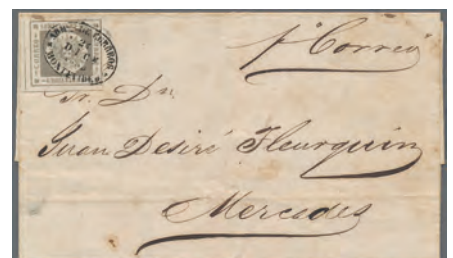 pr Correo
Sr. Dn.
Juan Desiré Fleurquin
Mercedes